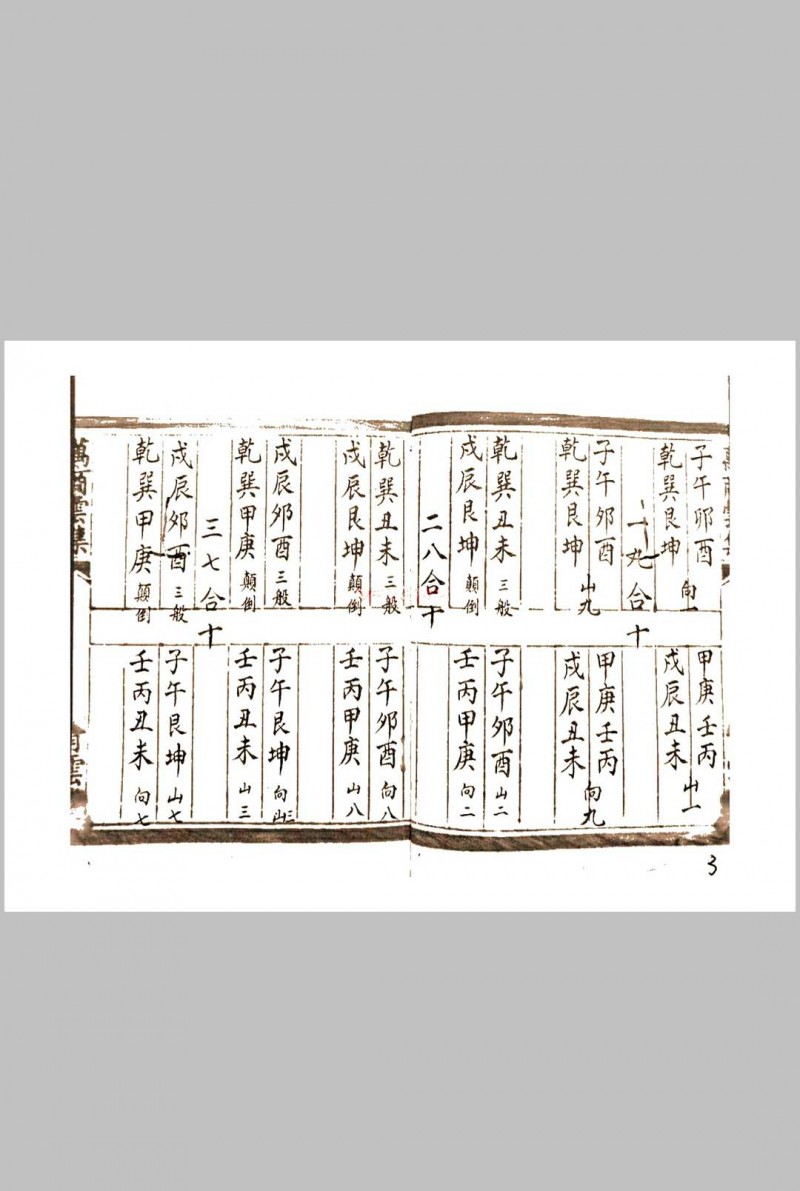 子午卯酉 向一
乾巽艮坤
一九合十
子午卯酉
乾巽艮坤 山九
乾巽丑未 三般
戌辰艮坤 顛倒
甲庚壬丙 山一
戌辰丑未
甲庚壬丙 向九
戌辰丑未
子午卯酉 山二
壬丙甲庚 向二
二八合十
乾巽丑未 三般
戌辰艮坤 顛倒
戌辰卯酉 三般
乾巽甲庚 顛倒
三七合十
戌辰卯酉 三般
乾巽甲庚 顛倒
子午卯酉 向八
壬丙甲庚 山八
子午艮坤 向三
壬丙丑未 山三
子午艮坤 山七
壬丙丑未 向七
3